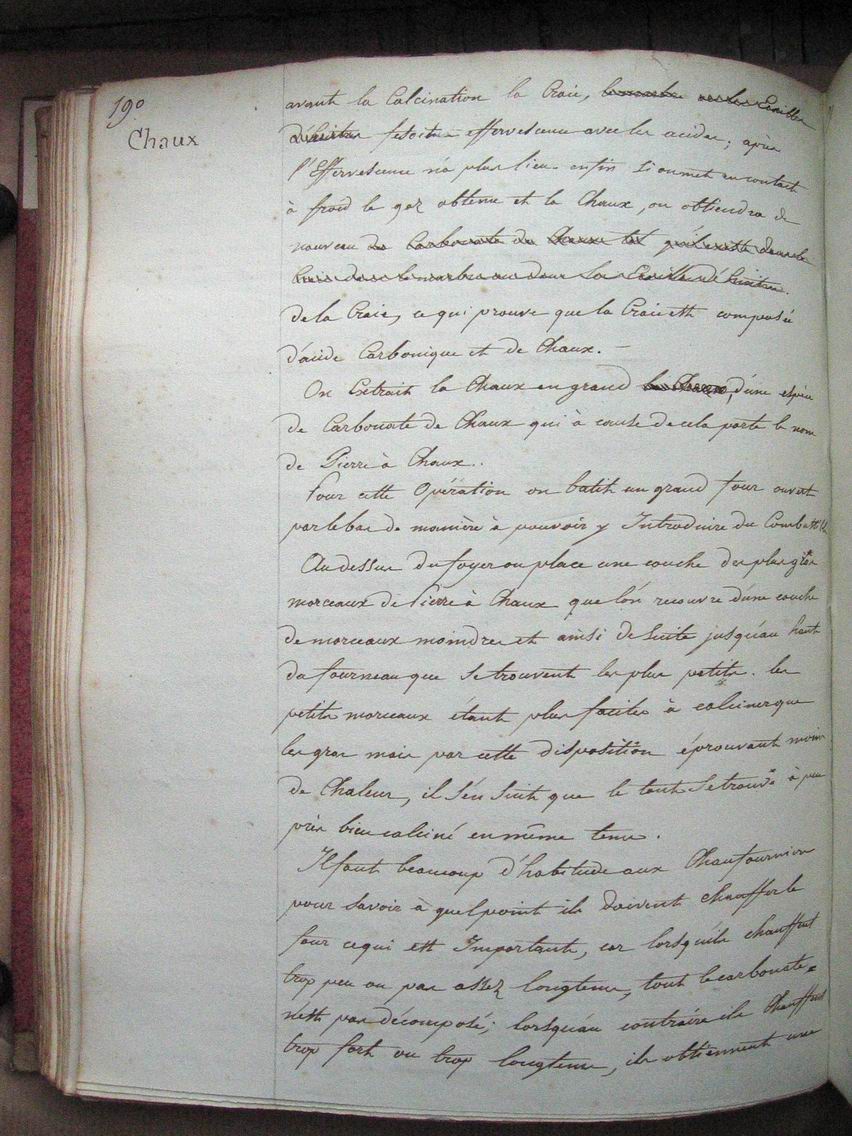 190
Chaux
avant la Calcination la Craie, le marbre ou les Ecailles
d'huitres fesoit effervescence avec les acides; après
l'Effervescence n'a plus lieu. enfin Si on met en contact
à froid le gaz obtenu et la Chaux, on obtiendra de
nouveau du Carbonate de Chaux tel qu'il existe dans la
Craie dans le marbre ou dans les Ecailles d'huitres.
de la Craie, ce qui prouve que la Craie est composée
d'acide Carbonique et de Chaux. —
On Extrait la Chaux en grand d'une espèce
de Carbonate de Chaux qui à cause de cela porte le nom
de Pierre à Chaux..
Pour cette Opération on batit un grand four ouvert
par le bas de manière à pouvoir y Introduire du Combustible
Au dessus du foyer on place une couche des plus gros
morceaux de Pierre à Chaux que l'on recouvre d'une couche
de morceaux moindres et ainsi de Suite jusqu'au haut
du fourneau que Se trouvent les plus petits. les
petits morceaux etant plus faciles à calciner que
les gros mais par cette disposition éprouvant moins
de Chaleur, il S'en Suit que le tout Se trouve à peu
près bien calciné en même tems.
Il faut beaucoup d'habitude aux Chaufourniers
pour Savoir à quel point ils doivent chauffer le
four ce qui est Important, car lorsqu'ils chauffent
trop peu ou pas assez longtems, tout le carbonate
n'est pas décomposé; lorsqu'au contraire ils Chauffent
trop fort ou trop longtems, ils obtiennent une